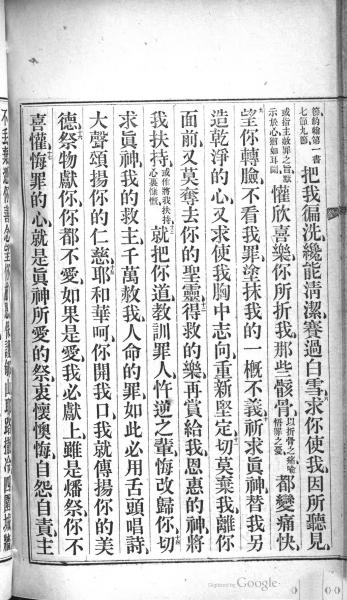 節約翰第一書
七節九節
把我偏洗纔能淸潔賽過白雪、求你使我因所聽見
或指主赦罪之旨默
示於心猶如耳聞
懽欣喜樂、你所折我那些骸骨、
以折骨之痛喻
悟罪之憂
都變痛快、
望你轉臉不看我罪、塗抹我的一槪不義、祈求眞神替我另
造乾淨的心、又求使我胸中志向、重新堅定、切莫棄我離你
面前、又莫奪去你的聖靈、得救的樂、再賞給我、恩惠的神、將
我扶持、
或作將我扶持
心裏慷慨
就把你道教訓罪人、忤逆之輩、悔改歸你、切
求眞神我的救主、千萬救我人命的罪、如此必用舌頭唱詩、
大聲頌揚你的仁慈、耶和華呵、你開我口、我就傳揚你的美
德、祭物獻你、你都不愛、如果是愛、我必獻上、雖是燔祭、你不
喜懽、悔罪的心、就是眞神所愛的祭、哀懷懊悔、自怨自責、主
山耶路撒冷四圍城牆
Digitized by Google